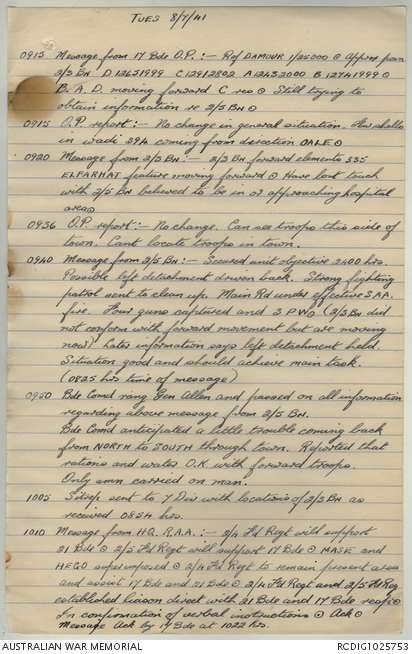 TUES 8/7/41
0915 Message from 17 Bde O.P. :- Ref DAMOUR 1/25000 ⊙ Approx posn
2/3 BN D 12651999 C 12912802 A 12432000 B 12741999 ⊙
B. A. D. moving forward C res ⊙ Still trying to
obtain information re 2/5 BN ⊙
0915 O.P. report :- No change in general situation. Few shells
in wadi 594 coming from direction DALE ⊙
0920 Message from 2/3 BN :- 2/3 BN forward elements 335
ELFARHAT feature moving forward ⊙ Have lost touch
with 2/5 BN believed to be in or approaching hospital
area ⊙
0936 O.P. report :- No change. Can see troops this side of
town. Cant locate troops in town.
0940 Message from 2/5 BN :- Secured unit objective 2400 hrs.
Possible left detachment driven back. Strong fighting
patrol sent to clean up. Main Rd under effective S.A.A.
fire. Four guns captured and 3 PW ⊙ (2/3 BN did
not conform with forward movement but are moving
now). Later information says left detachment held.
Situation good and should achieve main task.
(0825 hrs time of message)
0950 Bde Comd rang Gen Allen and passed on all information
regarding above message from 2/5 BN.
Bde Comd anticipated a little trouble coming back
from NORTH to SOUTH through town. Reported that
rations and water O.K. with forward troops.
Only amn carried on man.
1005 Sitrep sent to 7 Div with locations of 2/3 BN as
received 0854 hrs.
1010 Message from HQ. R.A.A. :- 2/4 Fd Regt will support
21 Bde ⊙ 2/5 Fd Regt will support 17 Bde ⊙ MASE and
HEGO superimposed ⊙ 2/4 Fd Regt to remain present area
and assist 17 Bde and 21 Bde ⊙ 2/4 Fd Regt and 2/5 Fd Reg
established liaison direct with 21 Bde and 17 Bde resp ⊙
In confirmation of verbal instructions ⊙ Ack ⊙
Message Ack by 17 Bde at 1022 hrs.
AUSTRALIAN WAR MEMORIAL
RCDIG1025753